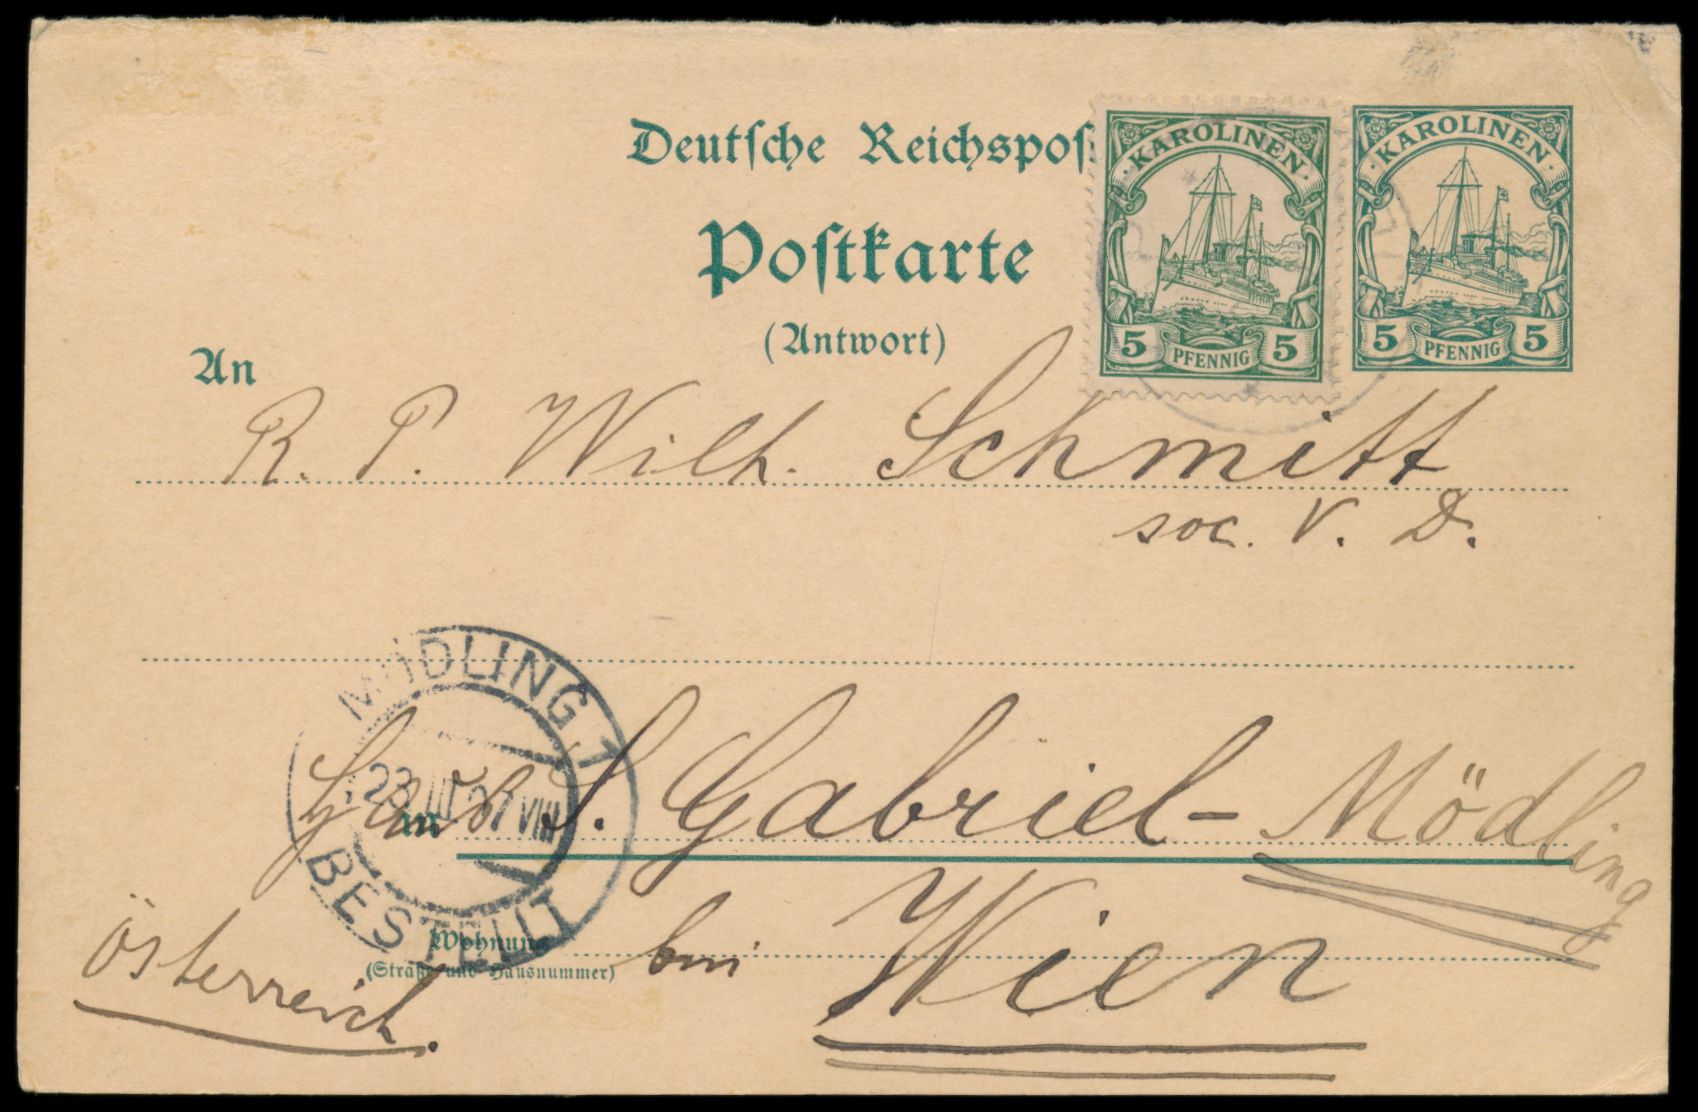 Deutsche Reichspos
KAROLINEN
5 PFENNIG 5
KAROLINEN
5 PFENNIG 5
Postkarte
(Antwort)
An
R. P. Wilh. Schmitt
soc. V. D.
MÖDLING 1
23 III 07 VIII
BESTELLT
S. Gabriel - Mödling
in
Wohnung
(Straße und Hausnummer)
bei Wien
Österreich.